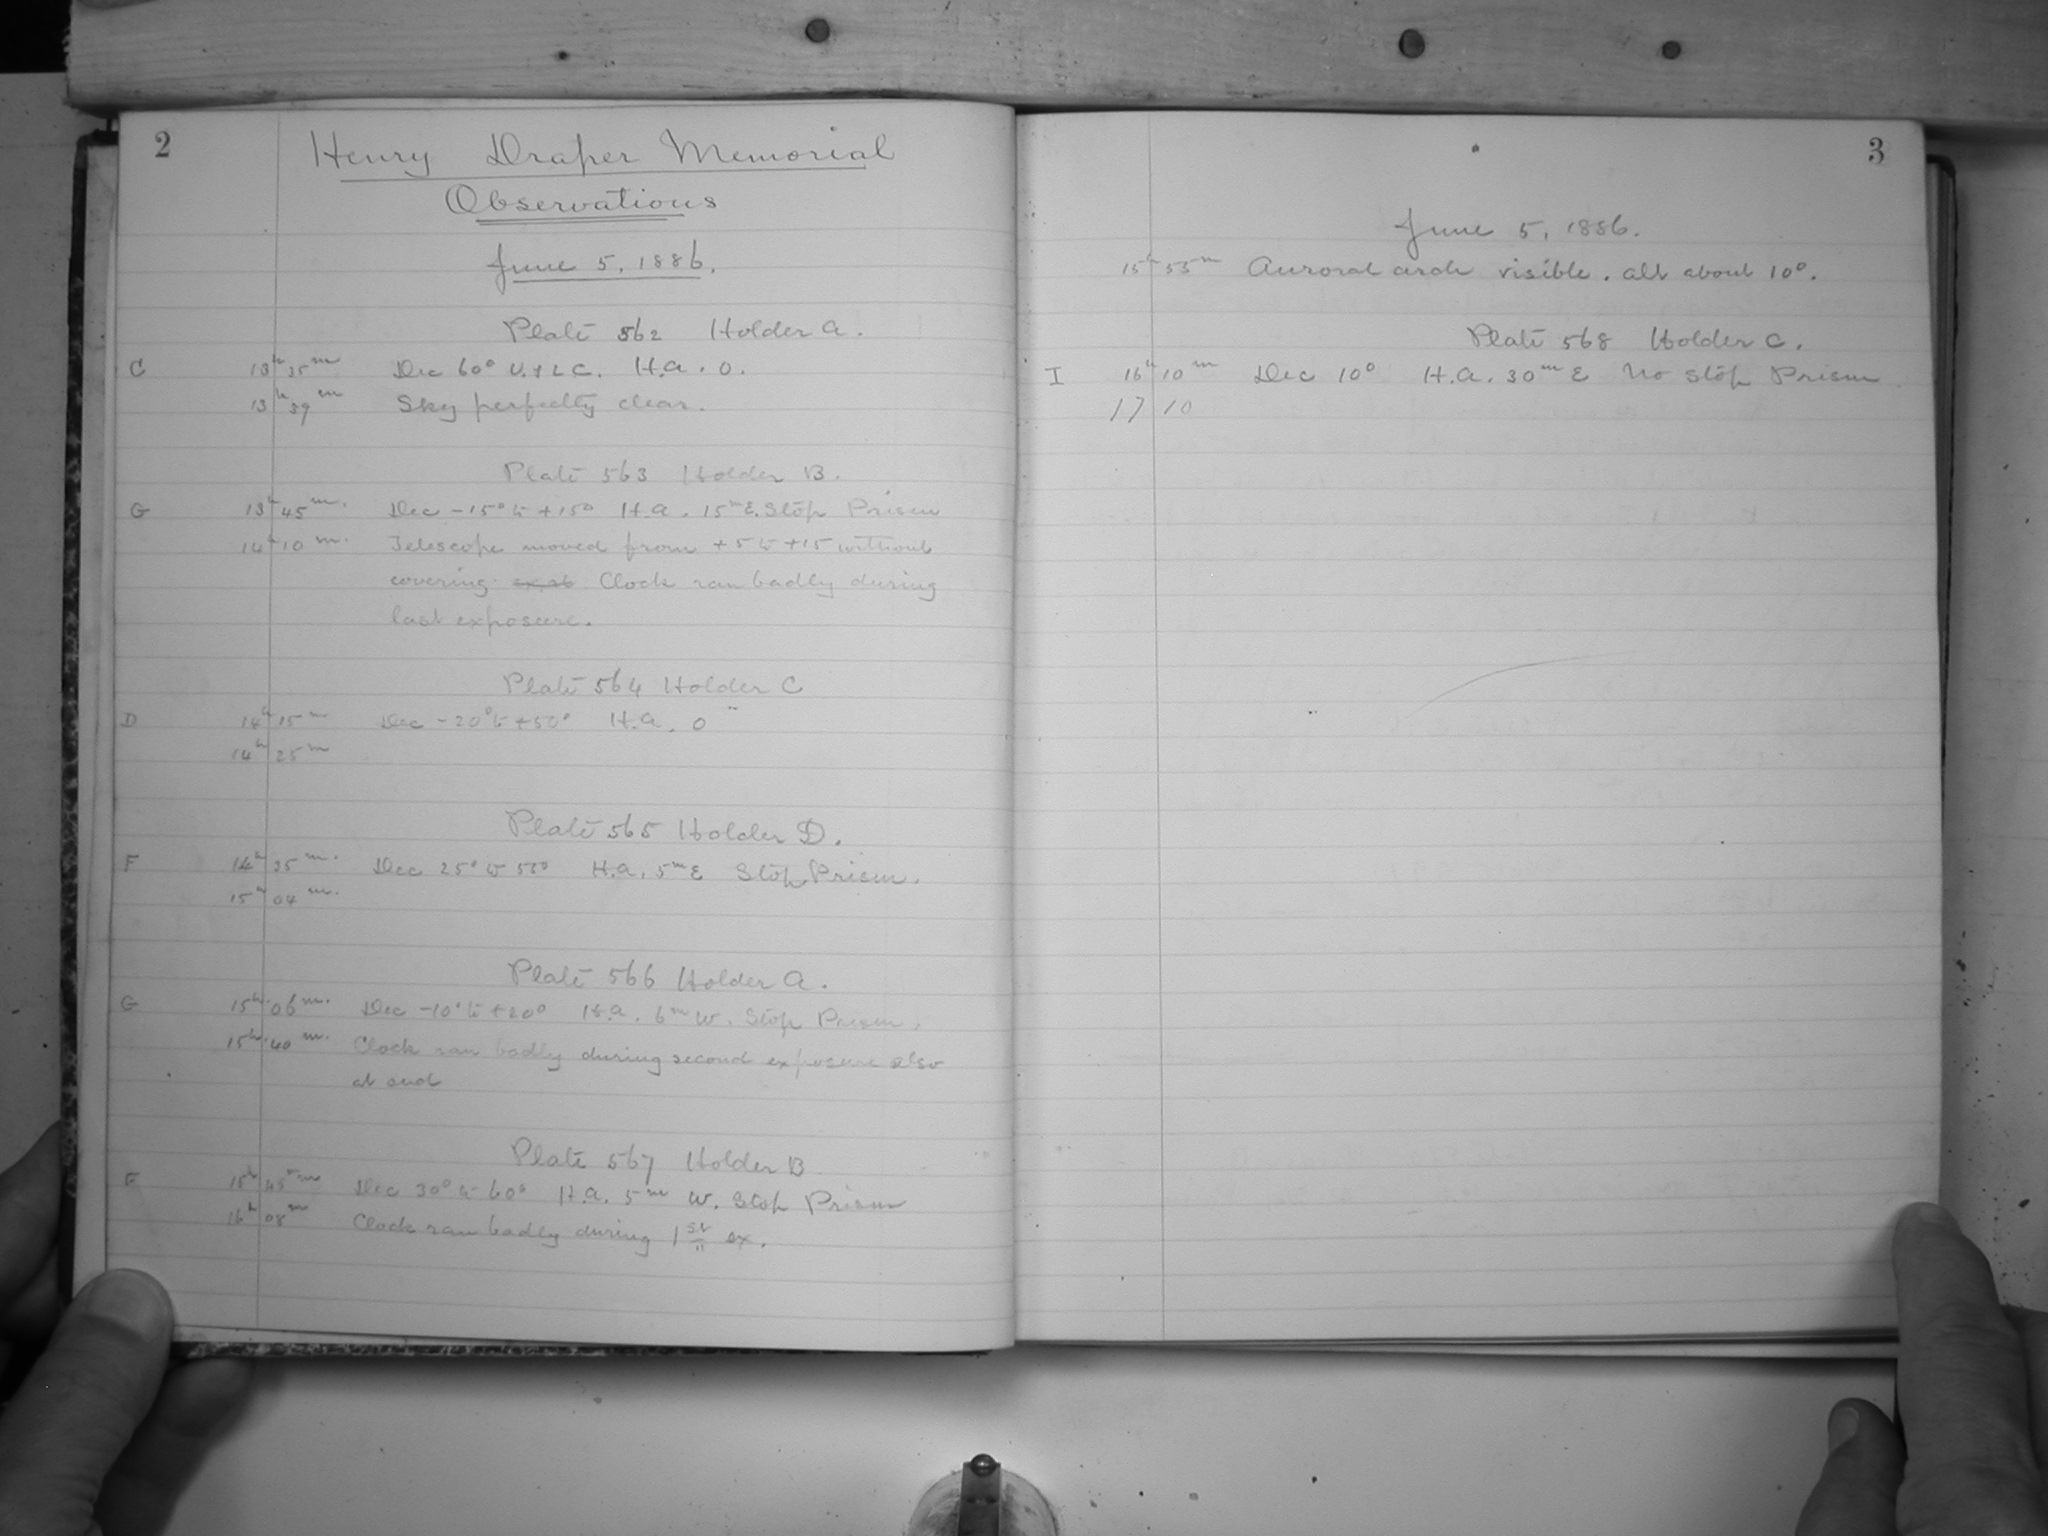 2
Henry Draper Memorial
Observations
June 5, 1886.
Plate 562 Holder A.
C 13h 35m Dec 60° U. + L C. H.A. 0.
13h 39m Sky perfectly clear.
Plate 563 Holder B.
G 13h 45m. Dec -15° to +15° H.A. 15m E. Stop Prism
14h 10m. Telescope moved from +5 to +15 without
covering. Clock ran badly during
last exposure.
Plate 564 Holder C
D 14h 15m Dec -20° to +50° H.A. 0
14h 25m
Plate 565 Holder D.
F 14h 35m. Dec 25° to 55° H.A. 5m E Stop Prism.
15h 04m.
Plate 566 Holder A.
G 15h 06m. Dec -10° to +20° H.A. 6m W. Stop Prism.
15h 40m. Clock ran badly during second exposure also
at end
Plate 567 Holder B
F 15h 45m Dec 30° to 60° H.A. 5m W. Stop Prism
16h 08m Clock ran badly during 1st ex.
3
June 5, 1886.
15h 55m Auroral arch visible. alt about 10°.
Plate 568 Holder C.
I 16h 10m Dec 10° H.A. 30m E No Stop Prism
17 10